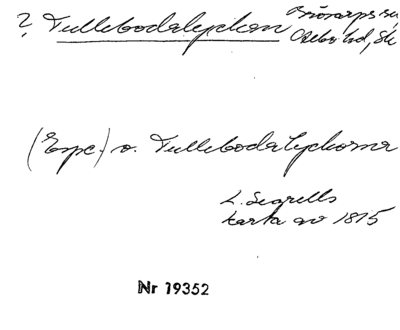 ? Tullebodalyckan Brösarps sn,
Albo hd, Sk
(Exc.) v. Tullebodalyckorna
L. Segrells
karta av 1815
Nr 19352